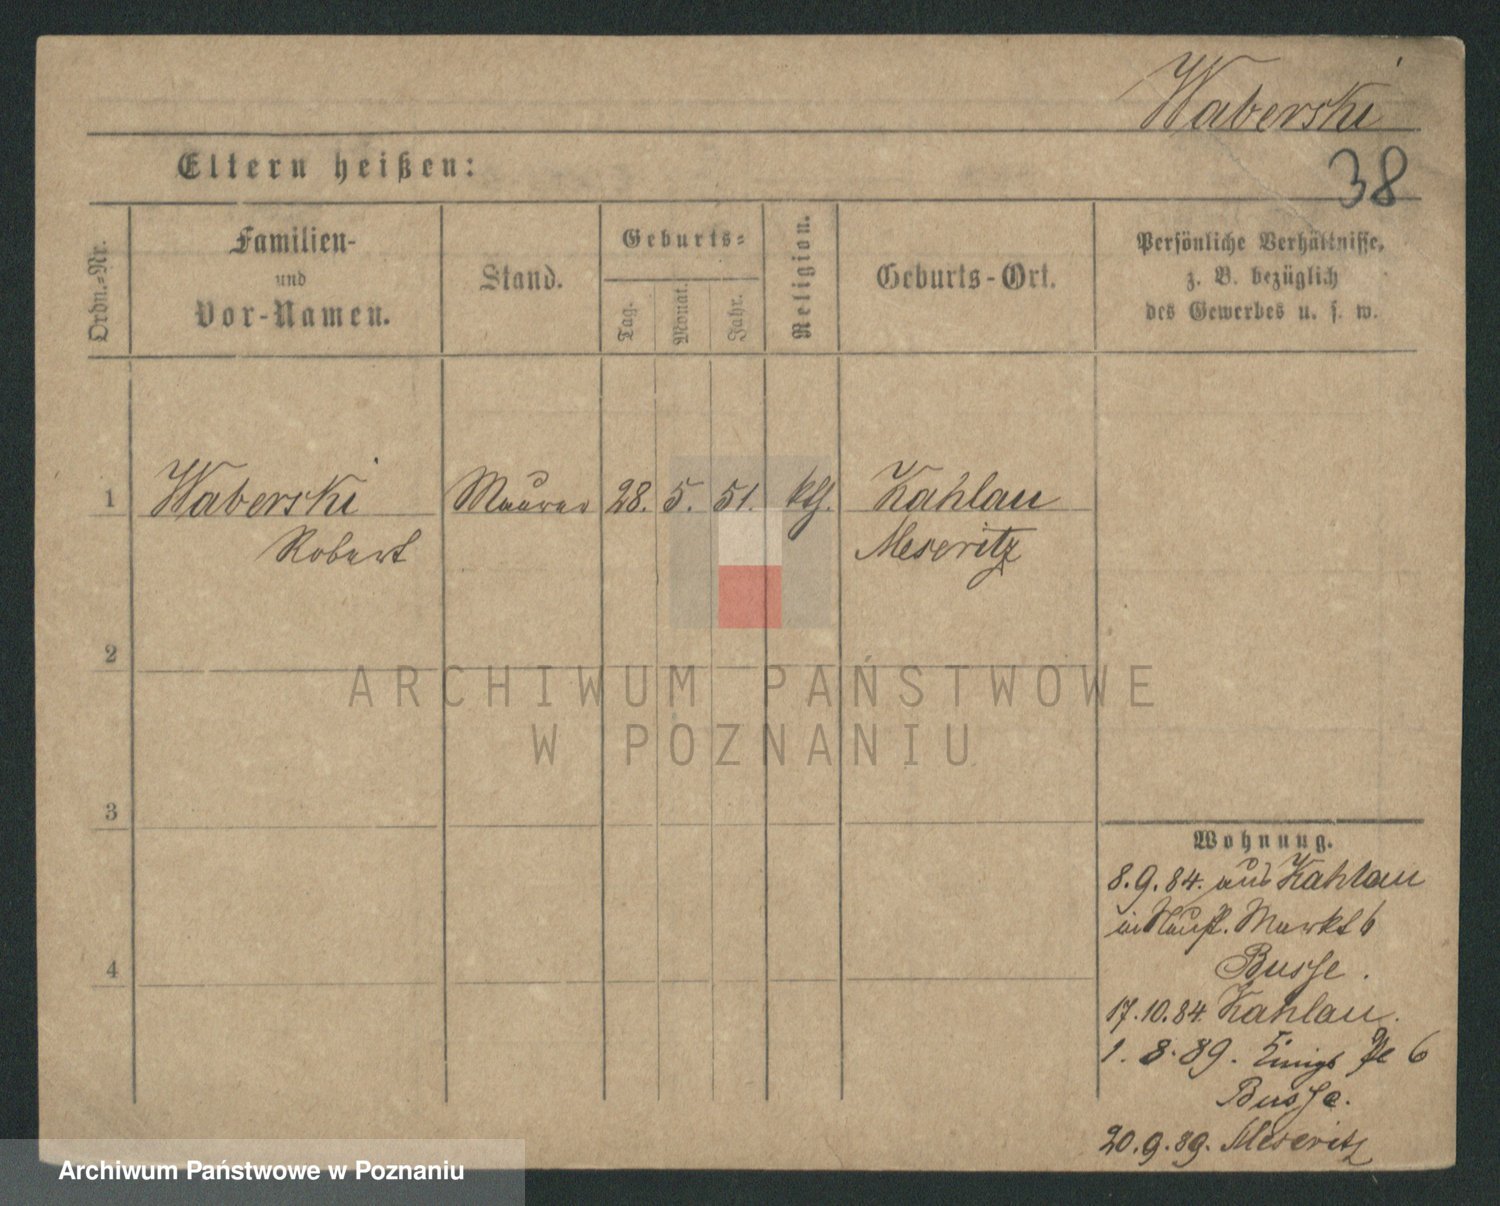 Waberski
38
Eltern heißen:
Ordn.-Nr.
Familien-
und
Vor-Namen.
Stand.
Geburts-
Tag.
Monat.
Jahr.
Religion.
Geburts-Ort.
Persönliche Verhältnisse,
z. B. bezüglich
des Gewerbes u. s. w.
1 Waberski Maurer 28. 5. 51. kth. Kahlau
Robert Meseritz
2
3
4
Wohnung.
8.9.84. aus Kahlau
Markt 6
Busse.
17.10.84. Kahlau.
1. 8. 89. Königs Pl 6
Busse.
20.9.89. Meseritz
ARCHIWUM PAŃSTWOWE
W POZNANIU
Archiwum Państwowe w Poznaniu